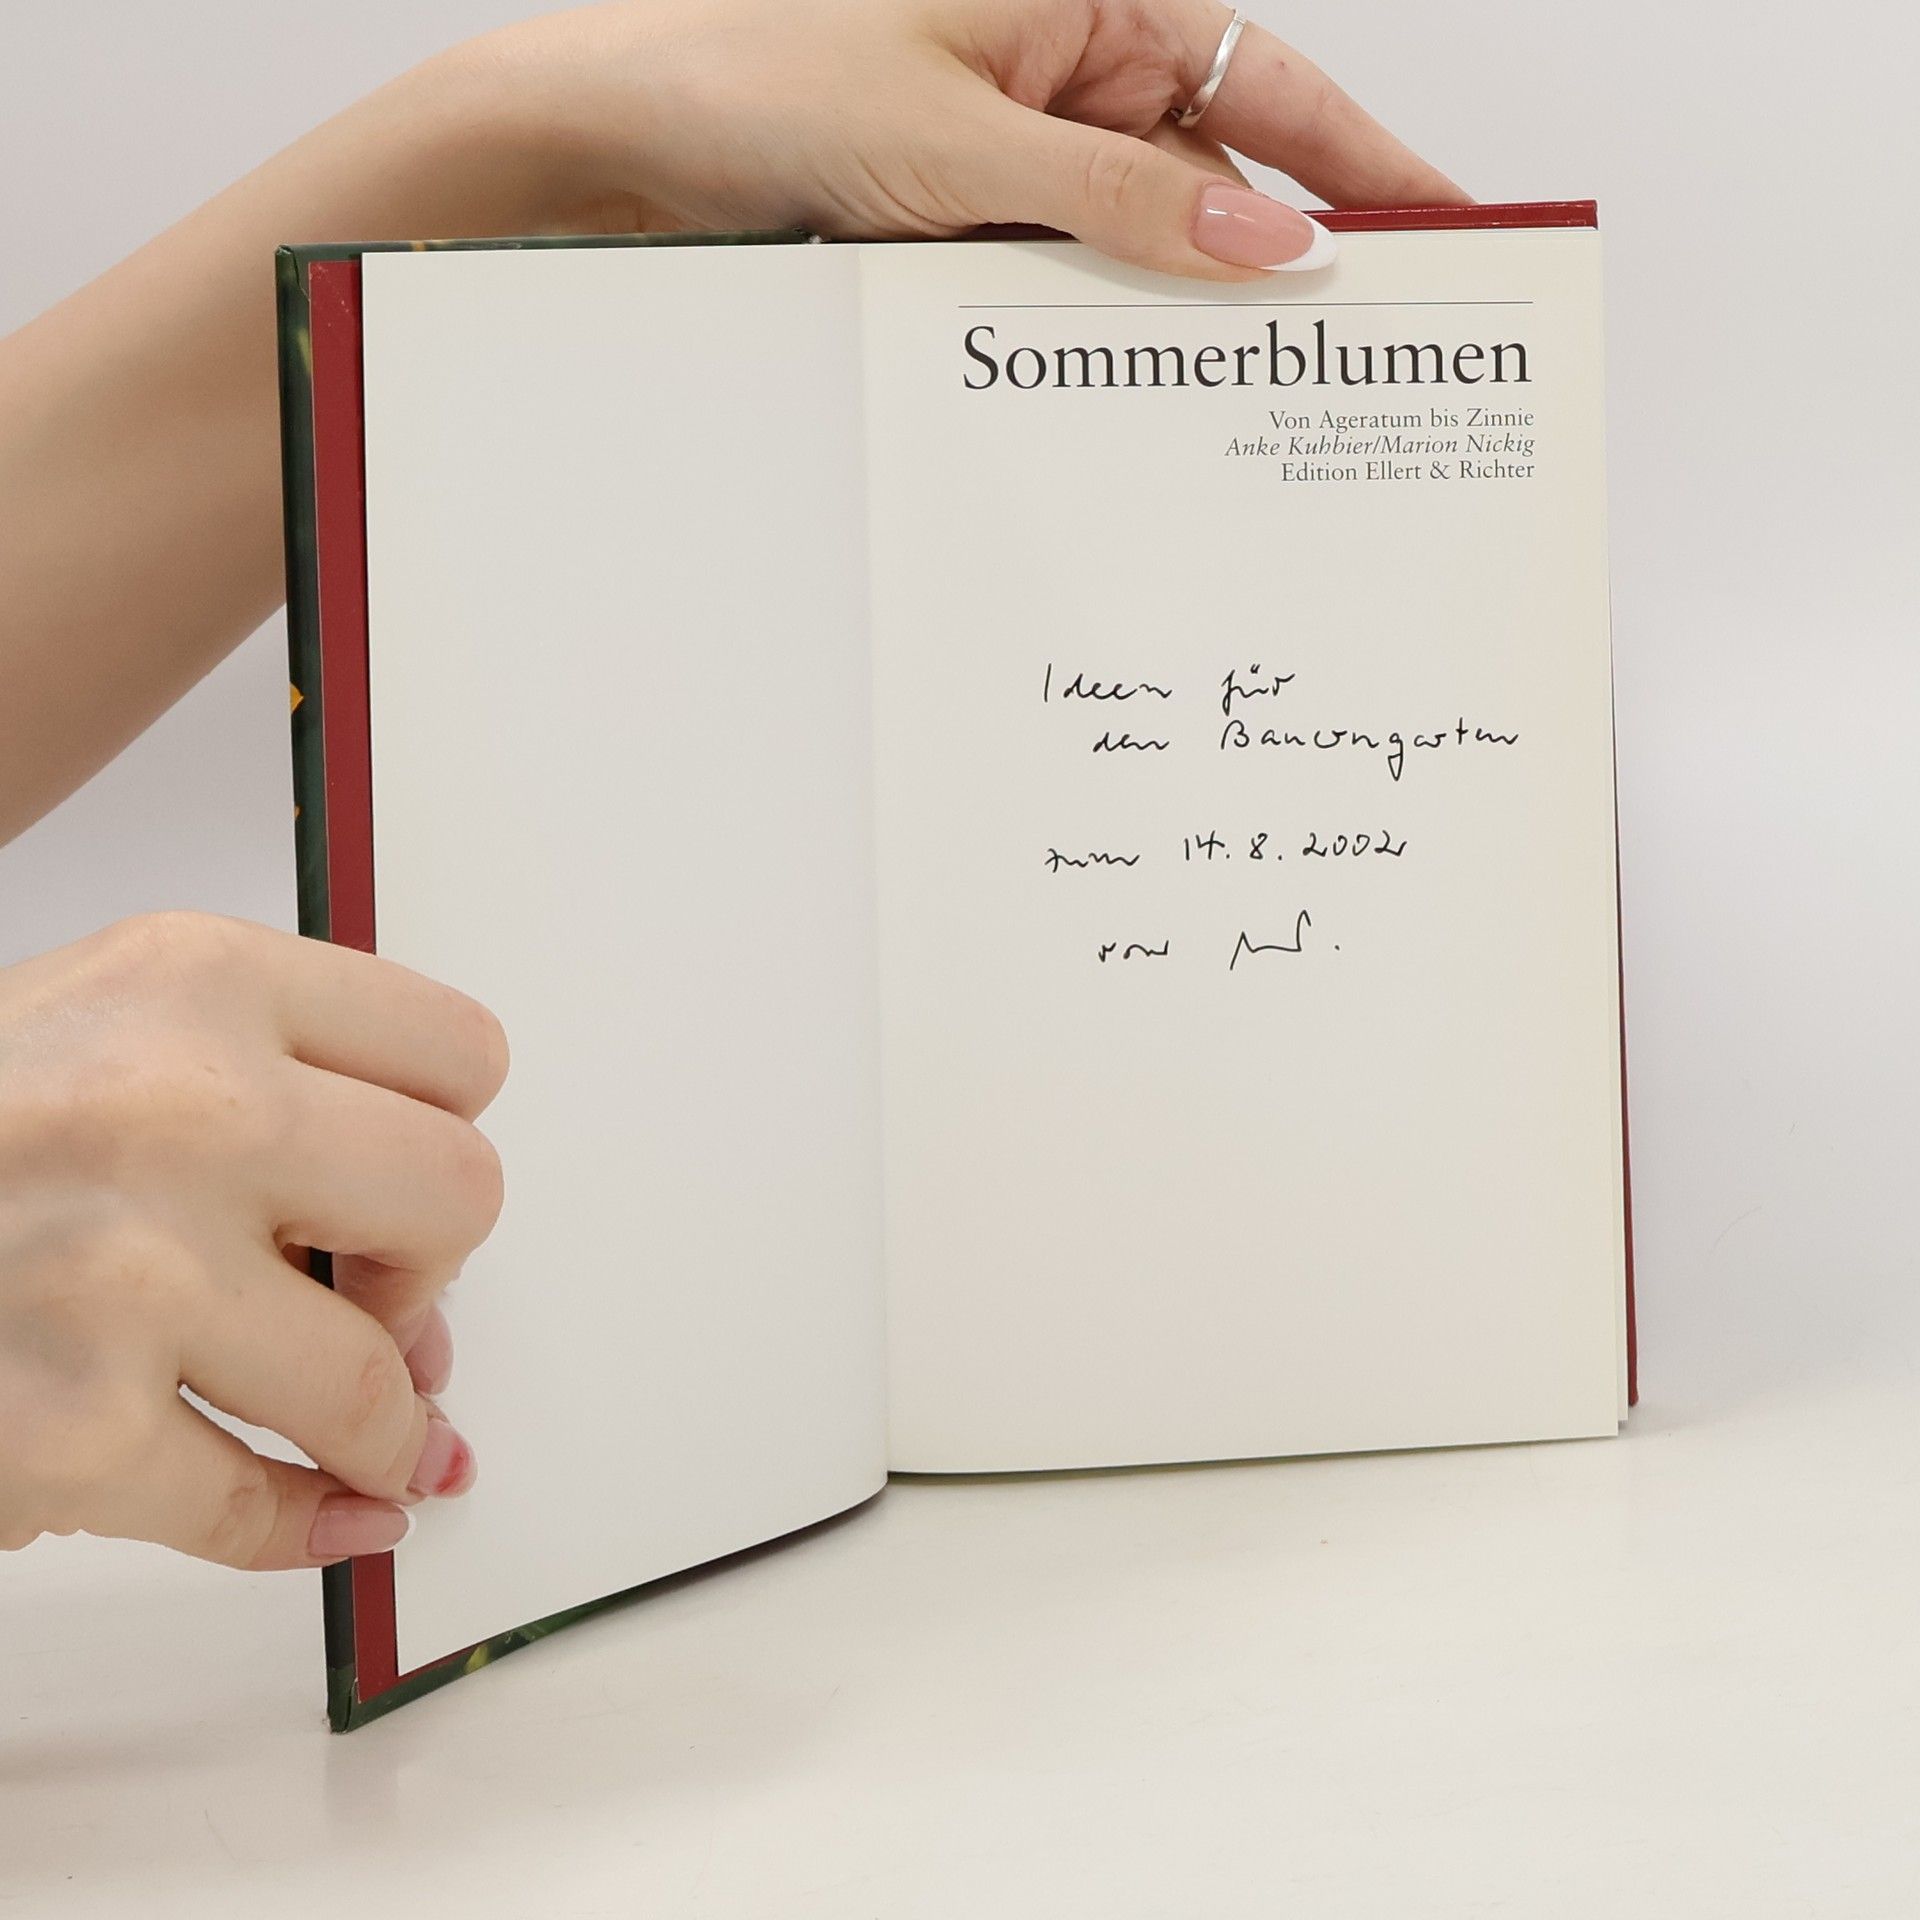 Sommerblumen
Von Ageratum bis Zinnie
Anke Kuhbier/Marion Nickig
Edition Ellert & Richter
Ideen für
den Baumgarten
zum 14.8.2002
von